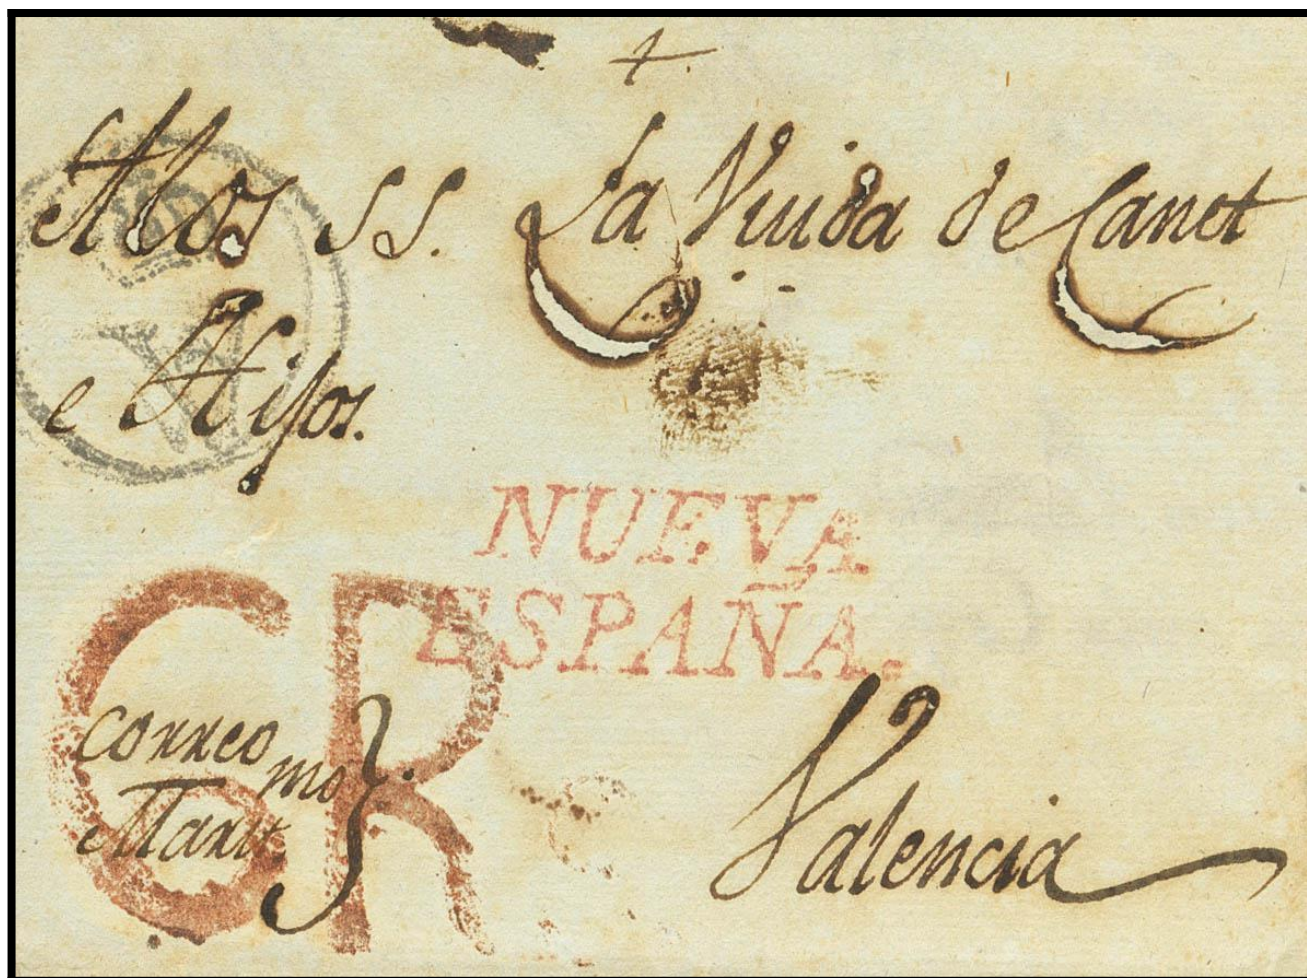 +
A los SS. La Viuda de Canet
e Hijos.
NUEVA
ESPAÑA.
GR
correo
Marit.mo
Valencia